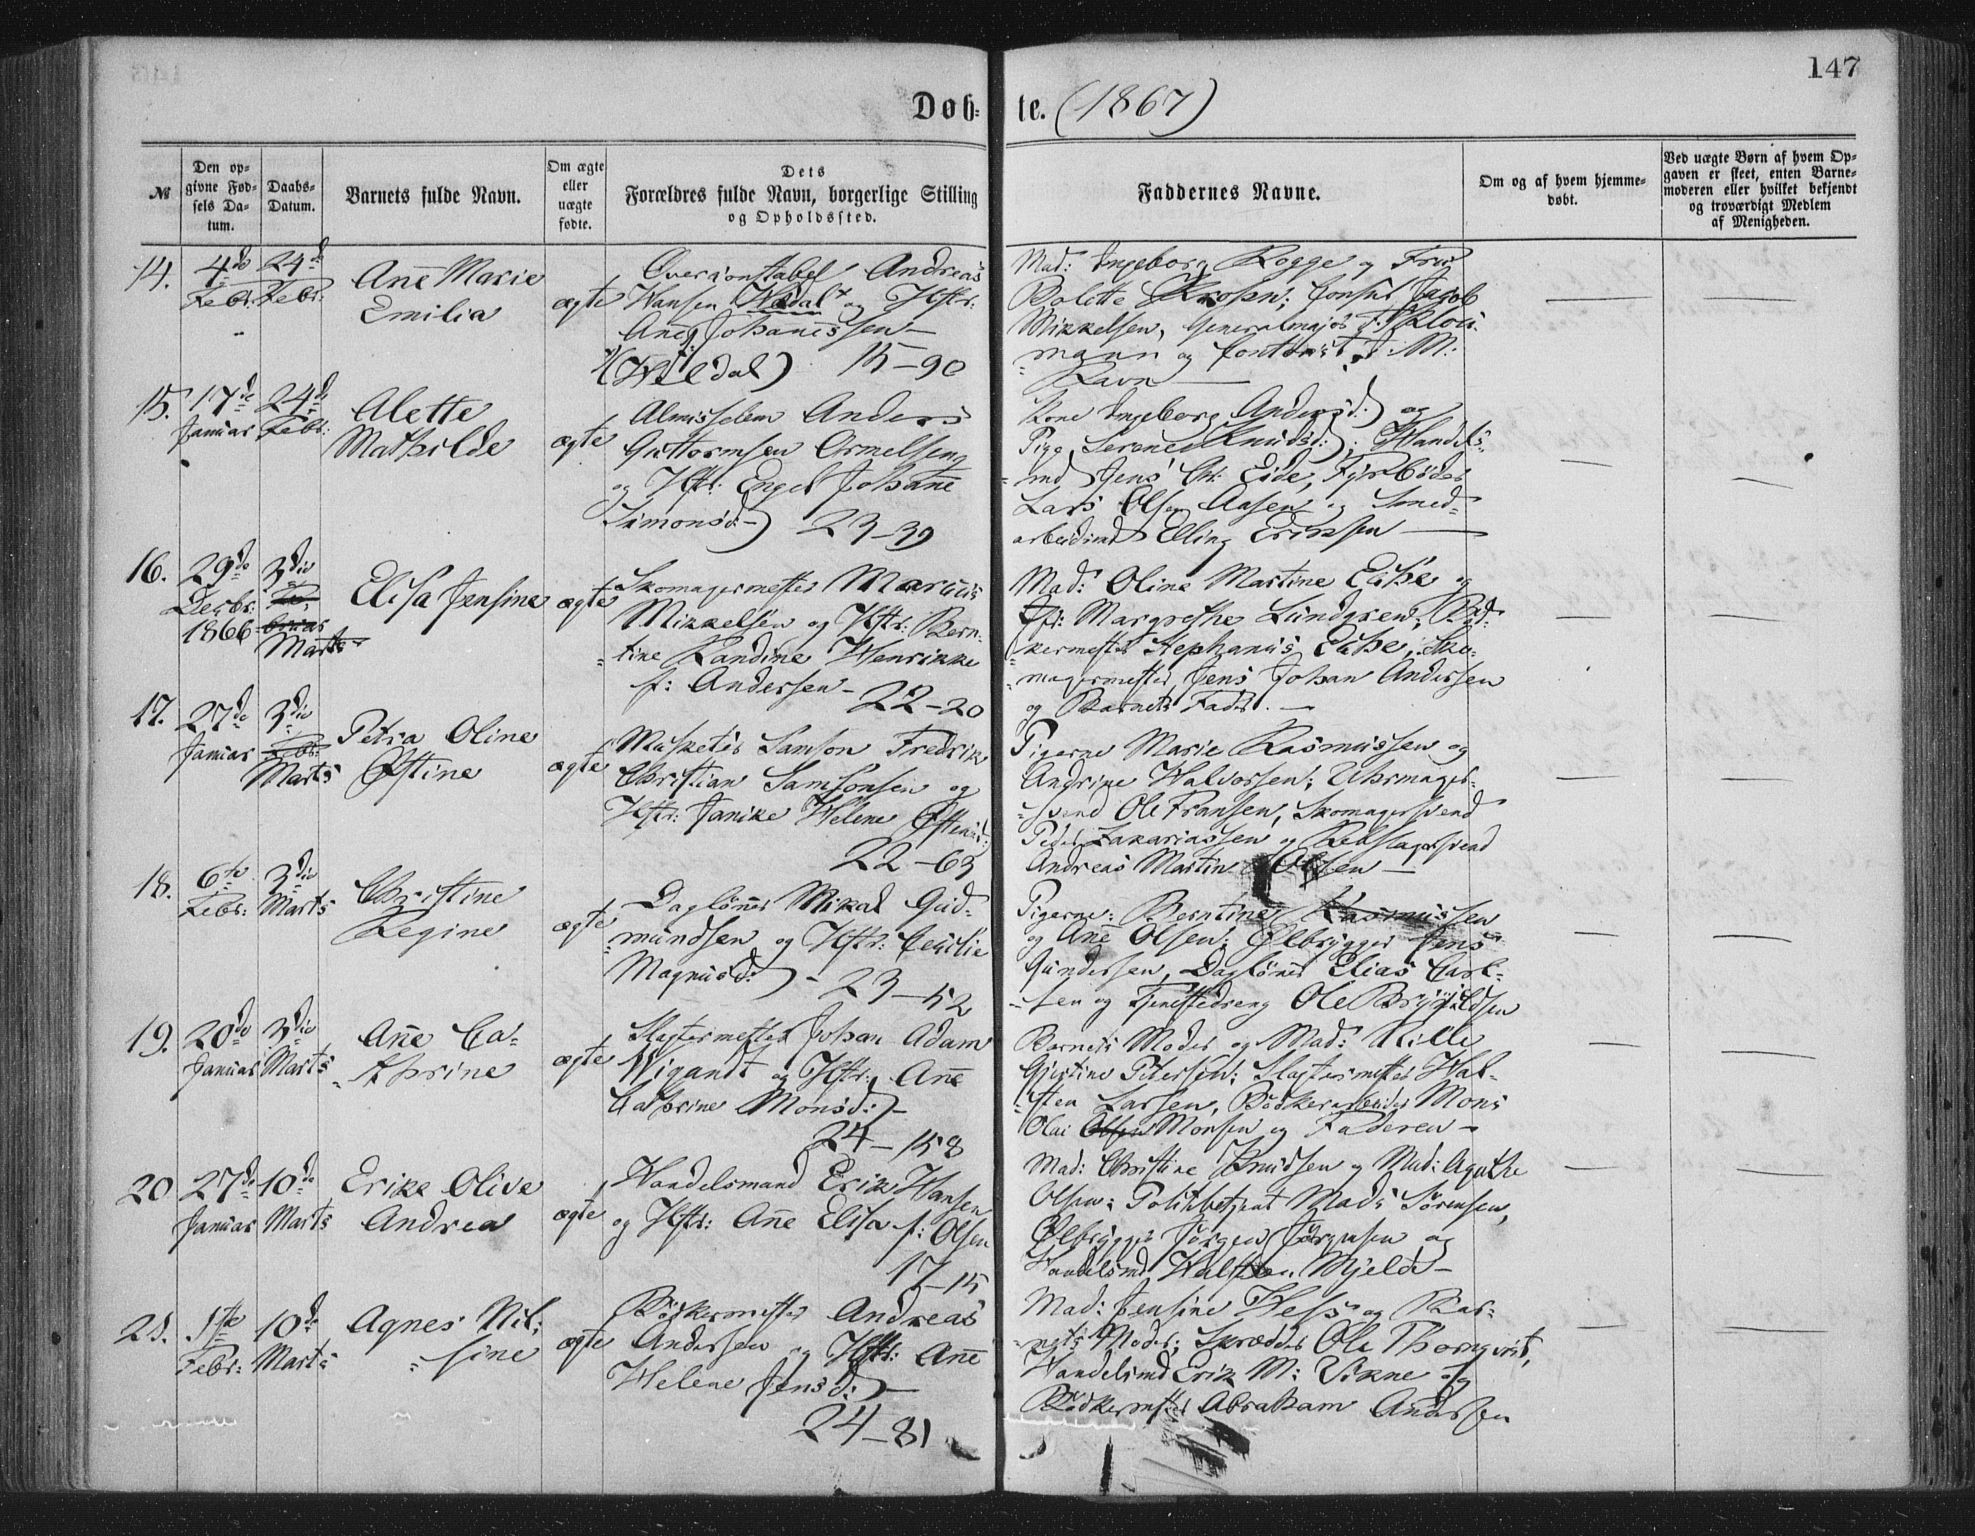 147
Døb-
te. (1867)
№
Den op-
givne Fød-
sels Da-
tum.
Daabs-
Datum.
Barnets fulde Navn.
Om ægte
eller
uægte
fødte.
Dets
Forældres fulde Navn, borgerlige Stilling
og Opholdssted.
Faddernes Navne.
Om og af hvem hjemme-
døbt.
Ved uægte Børn af hvem Op-
gaven er skeet, enten Barne-
moderen eller hvilket bekjendt
og troværdigt Medlem
af Menigheden.
14.
4de
Febr:
24d
Febr:
Ane Marie
Emilia
ægte
Andreas
Hansen og Hstr:
Ane Johannessen
15-90
Mad: Ingeborg Rogge og Fru
Bolette Consul Jacob
Mikkelsen, Generalmajor F.
mann og Contorist J. M:
Ravn —
15.
17de
Januar
24d
Febr:
Alette
Mathilde
ægte
Almisselem Anders
Guttormsen Ormelsen
og Hstr: Engel Johanne
Simonsd: 23-39
Kone Ingeborg Andersd: og
Pige Serene Knudsd: Handels-
md Jens Chr: Eide, Fyrbøder
Lars Olsen Aasen og Smed-
arbeidsmd Elling Eriksen —
16.
29de
Decbr:
1866
3die
Marts
Elisa Jensine
ægte
Skomagermester Marius
Mikkelsen og Hstr: Bern-
tine Randine Henrikke
f: Andersen - 22-20
Mad: Oline Martine Eithe og
Margrethe Lundgren; Bød-
kermester Stephanus Eithe, Sko-
magermester Jens Johan Andersen
og Barnets Fader. —
17.
27de
Januar
3die
Febr:
Marts
Petra Oline
Østine
ægte
Musketer Samson Fredrik
Christian Samsonsen og
Hstr: Janike Helene
22-63
Pigerne Marie Rasmussen og
Andrine Halvorsen; Uhrmager-
svend Ole Fransen, Skomagersvend
Peder Zakariassen og Rebslagersvend
Andreas Martin Olsen —
18.
6te
Febr:
3die
Marts
Christine
Regine
ægte
Dagløner Mikal Gud-
mundsen og Hstr: Cecilie
Magnusd: - 23-52
Pigerne: Berntine Rasmussen
og Ane Olsen; Ølbrygger Jens
Gundersen, Dagløner Elias Carl-
sen og Tjenestedreng Ole Brynildsen
19.
20de
Januar
3die
Marts
Ane Ca-
thrine
ægte
Slagtermester Johan Adam
Wigandt og Hstr: Ane
Cathrine Monsd: -
24-158
Barnets Moder og Mad: Nille
Gjertine Petersen; Slagtermester Hal-
sten Larsen, Bødkerarbeider Mons
Olai Olsen Monsen og Faderen -
20
27de
Januar
10de
Marts
Erike Olive
Andrea
ægte
Handelsmand Erik Hansen
og Hstr: Ane Elisa f: Olsen
17-15
Mad: Christine Knudsen og Mad: Agathe
Olsen; Politibetjent Mads Sørensen,
Ølbrygger Jørgen Jørgensen og
Handelsmd Halsten Mjelde -
21.
1ste
Febr:
10de
Marts
Agnes Nil-
sine
ægte
Bødkermester Andreas
Andersen og Hstr: Ane
Helene Jensd: -
24-81
Mad: Jensine Wess og Bar-
nets Moder; Skrædder Ole Thornqvist,
Handelsmd Erik M: Vikne og
Bødkermester Abraham Andersen